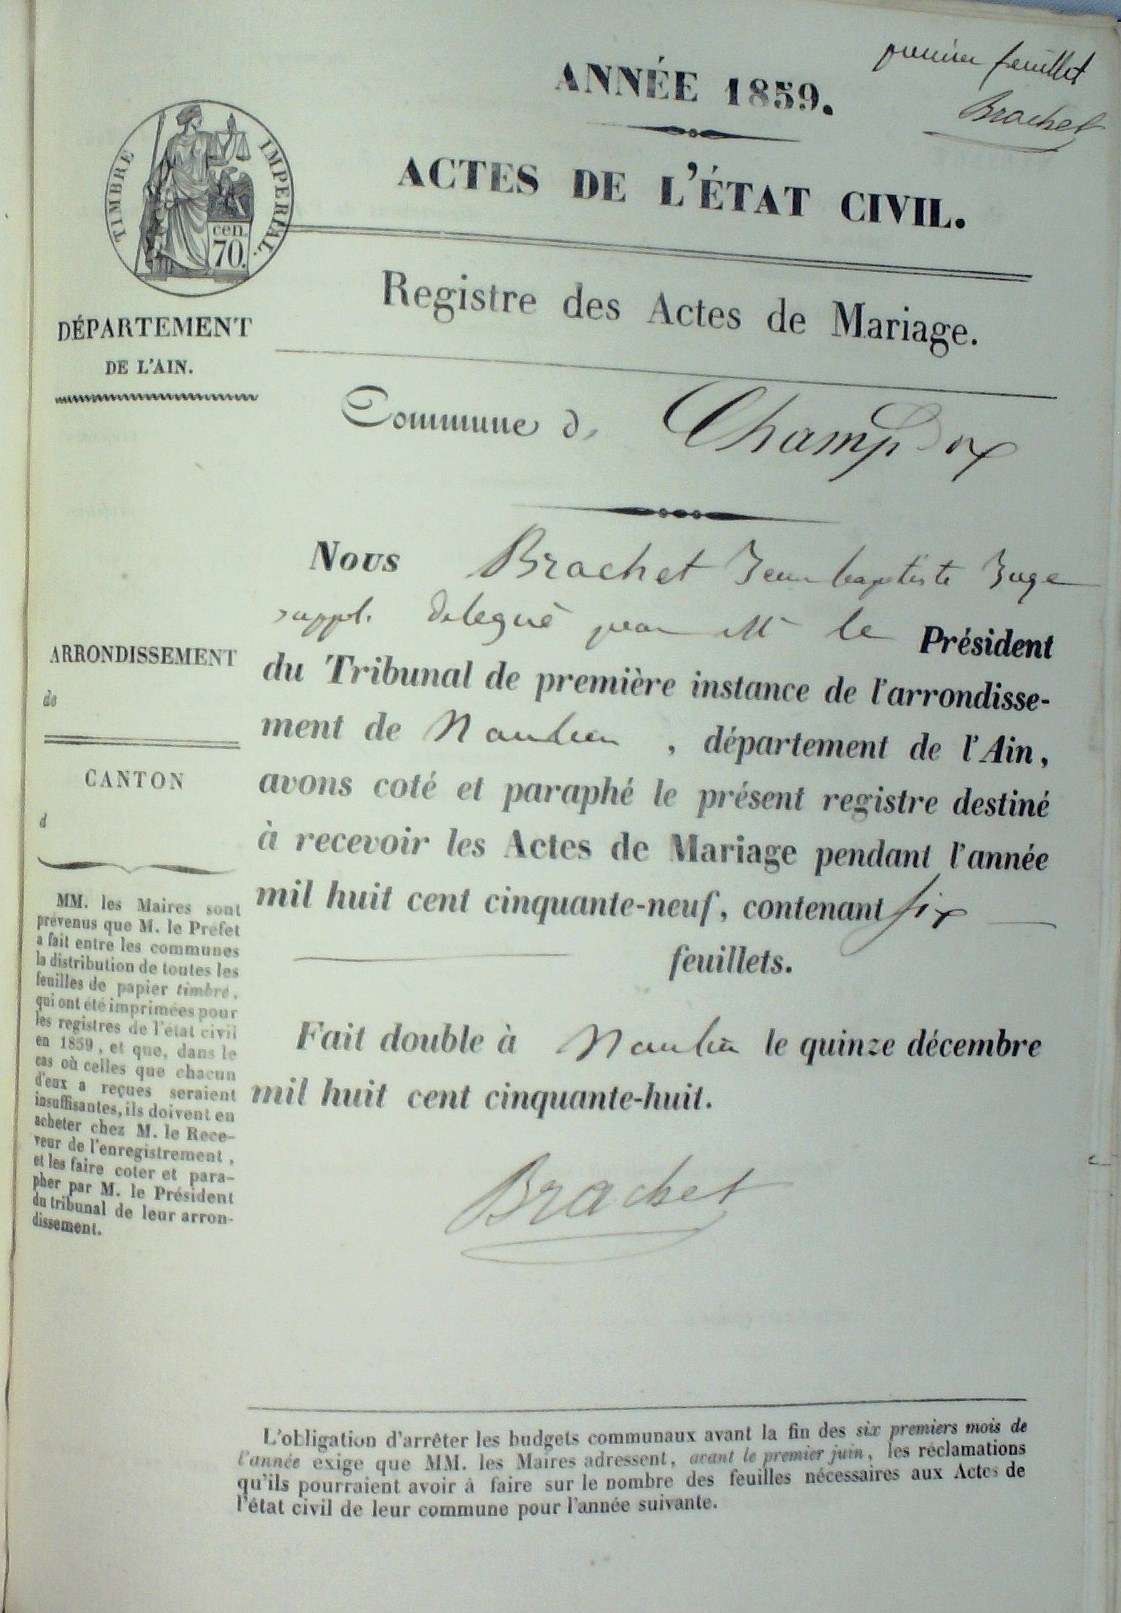 premier feuillet
Brachet
ANNÉE 1859.
ACTES DE L'ÉTAT CIVIL.
TIMBRE IMPÉRIAL.
cen.
70.
DÉPARTEMENT
DE L'AIN.
Registre des Actes de Mariage.
Commune d Champdor
Nous Brachet Jean baptiste Juge
suppl. délegué par Mr le Président
du Tribunal de première instance de l'arrondisse-
ment de Nantua, département de l'Ain,
avons coté et paraphé le présent registre destiné
à recevoir les Actes de Mariage pendant l'année
mil huit cent cinquante-neuf, contenant six
feuillets.
Fait double à Nantua le quinze décembre
mil huit cent cinquante-huit.
Brachet
ARRONDISSEMENT
de
CANTON
d
MM. les Maires sont
prévenus que M. le Préfet
a fait entre les communes
la distribution de toutes les
feuilles de papier timbré,
qui ont été imprimées pour
les registres de l'état civil
en 1859, et que, dans le
cas où celles que chacun
d'eux a reçues seraient
insuffisantes, ils doivent en
acheter chez M. le Rece-
veur de l'enregistrement,
et les faire coter et para-
pher par M. le Président
du tribunal de leur arron-
dissement.
L'obligation d'arrêter les budgets communaux avant la fin des six premiers mois de
l'année exige que MM. les Maires adressent, avant le premier juin, les réclamations
qu'ils pourraient avoir à faire sur le nombre des feuilles nécessaires aux Actes de
l'état civil de leur commune pour l'année suivante.